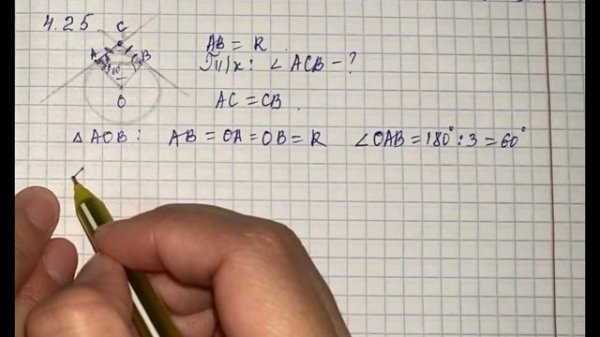 4.25.
C
A B
60°
O
AB = R
Т/к: ∠ ACB - ?
AC = CB
△ AOB: AB = OA = OB = R ∠OAB = 180° : 3 = 60°